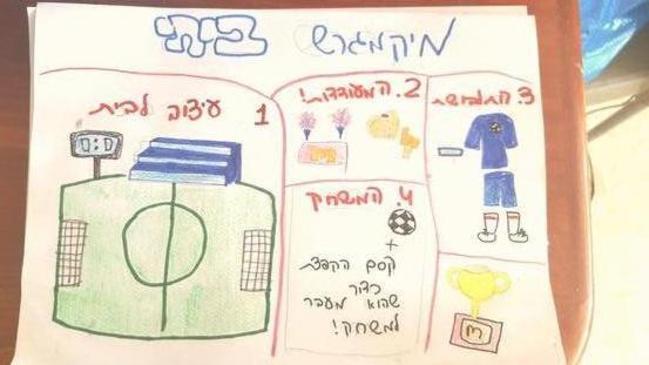 מיקמגרש ביתי
1 עיצוב לבית
0:0
2. המעודדות!
3. התלבושת
4. המשחק
+
קסם הקפצת
כדור
שהוא מעבר
למשחק!